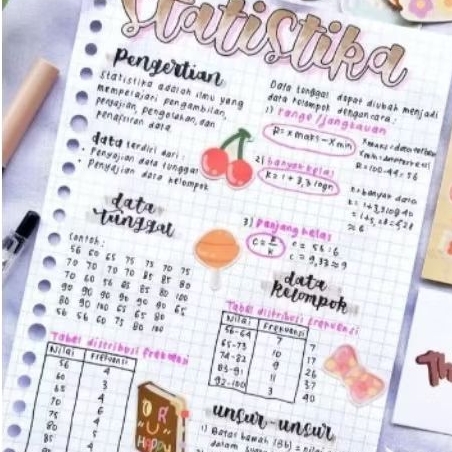 Statistika
Pengertian
Statistika adalah ilmu yang
mempelajari pengambilan,
penyajian, pengolahan, dan
penafsiran data
data terdiri dari:
• Penyajian data tunggal
• Penyajian data kelompok
data
tunggal
Contoh:
56 60 65 75 75 70 75
70 70 70 70 85 85 80
70 60 56 65 85 80 100
90 90 90 90 90 90 65
80 90 100 65 65 80
56 56 60 75 80 100
Tabel distribusi frekuensi
Nilai Frekuensi
56 4
60 3
65
70
75 4
80
85
Data tunggal dapat diubah menjadi
data kelompok dengan cara:
1) range / jangkauan
R = x maks - x min
R = 100 - 44 = 56
2) banyak kelas
k = 1 + 3,3 log n
≈ 6
3) panjang kelas
c = R/k
c = 56 : 6
c = 9,33 ≈ 9
data
kelompok
Tabel distribusi frekuensi
Nilai Frekuensi
56-64 7 7
65-73 10 17
74-82 9 26
83-91 11 37
92-100 3 40
unsur-unsur
1) Batas bawah (Bb) = nilai
dalam
OR
"U"
HAPPY
Th